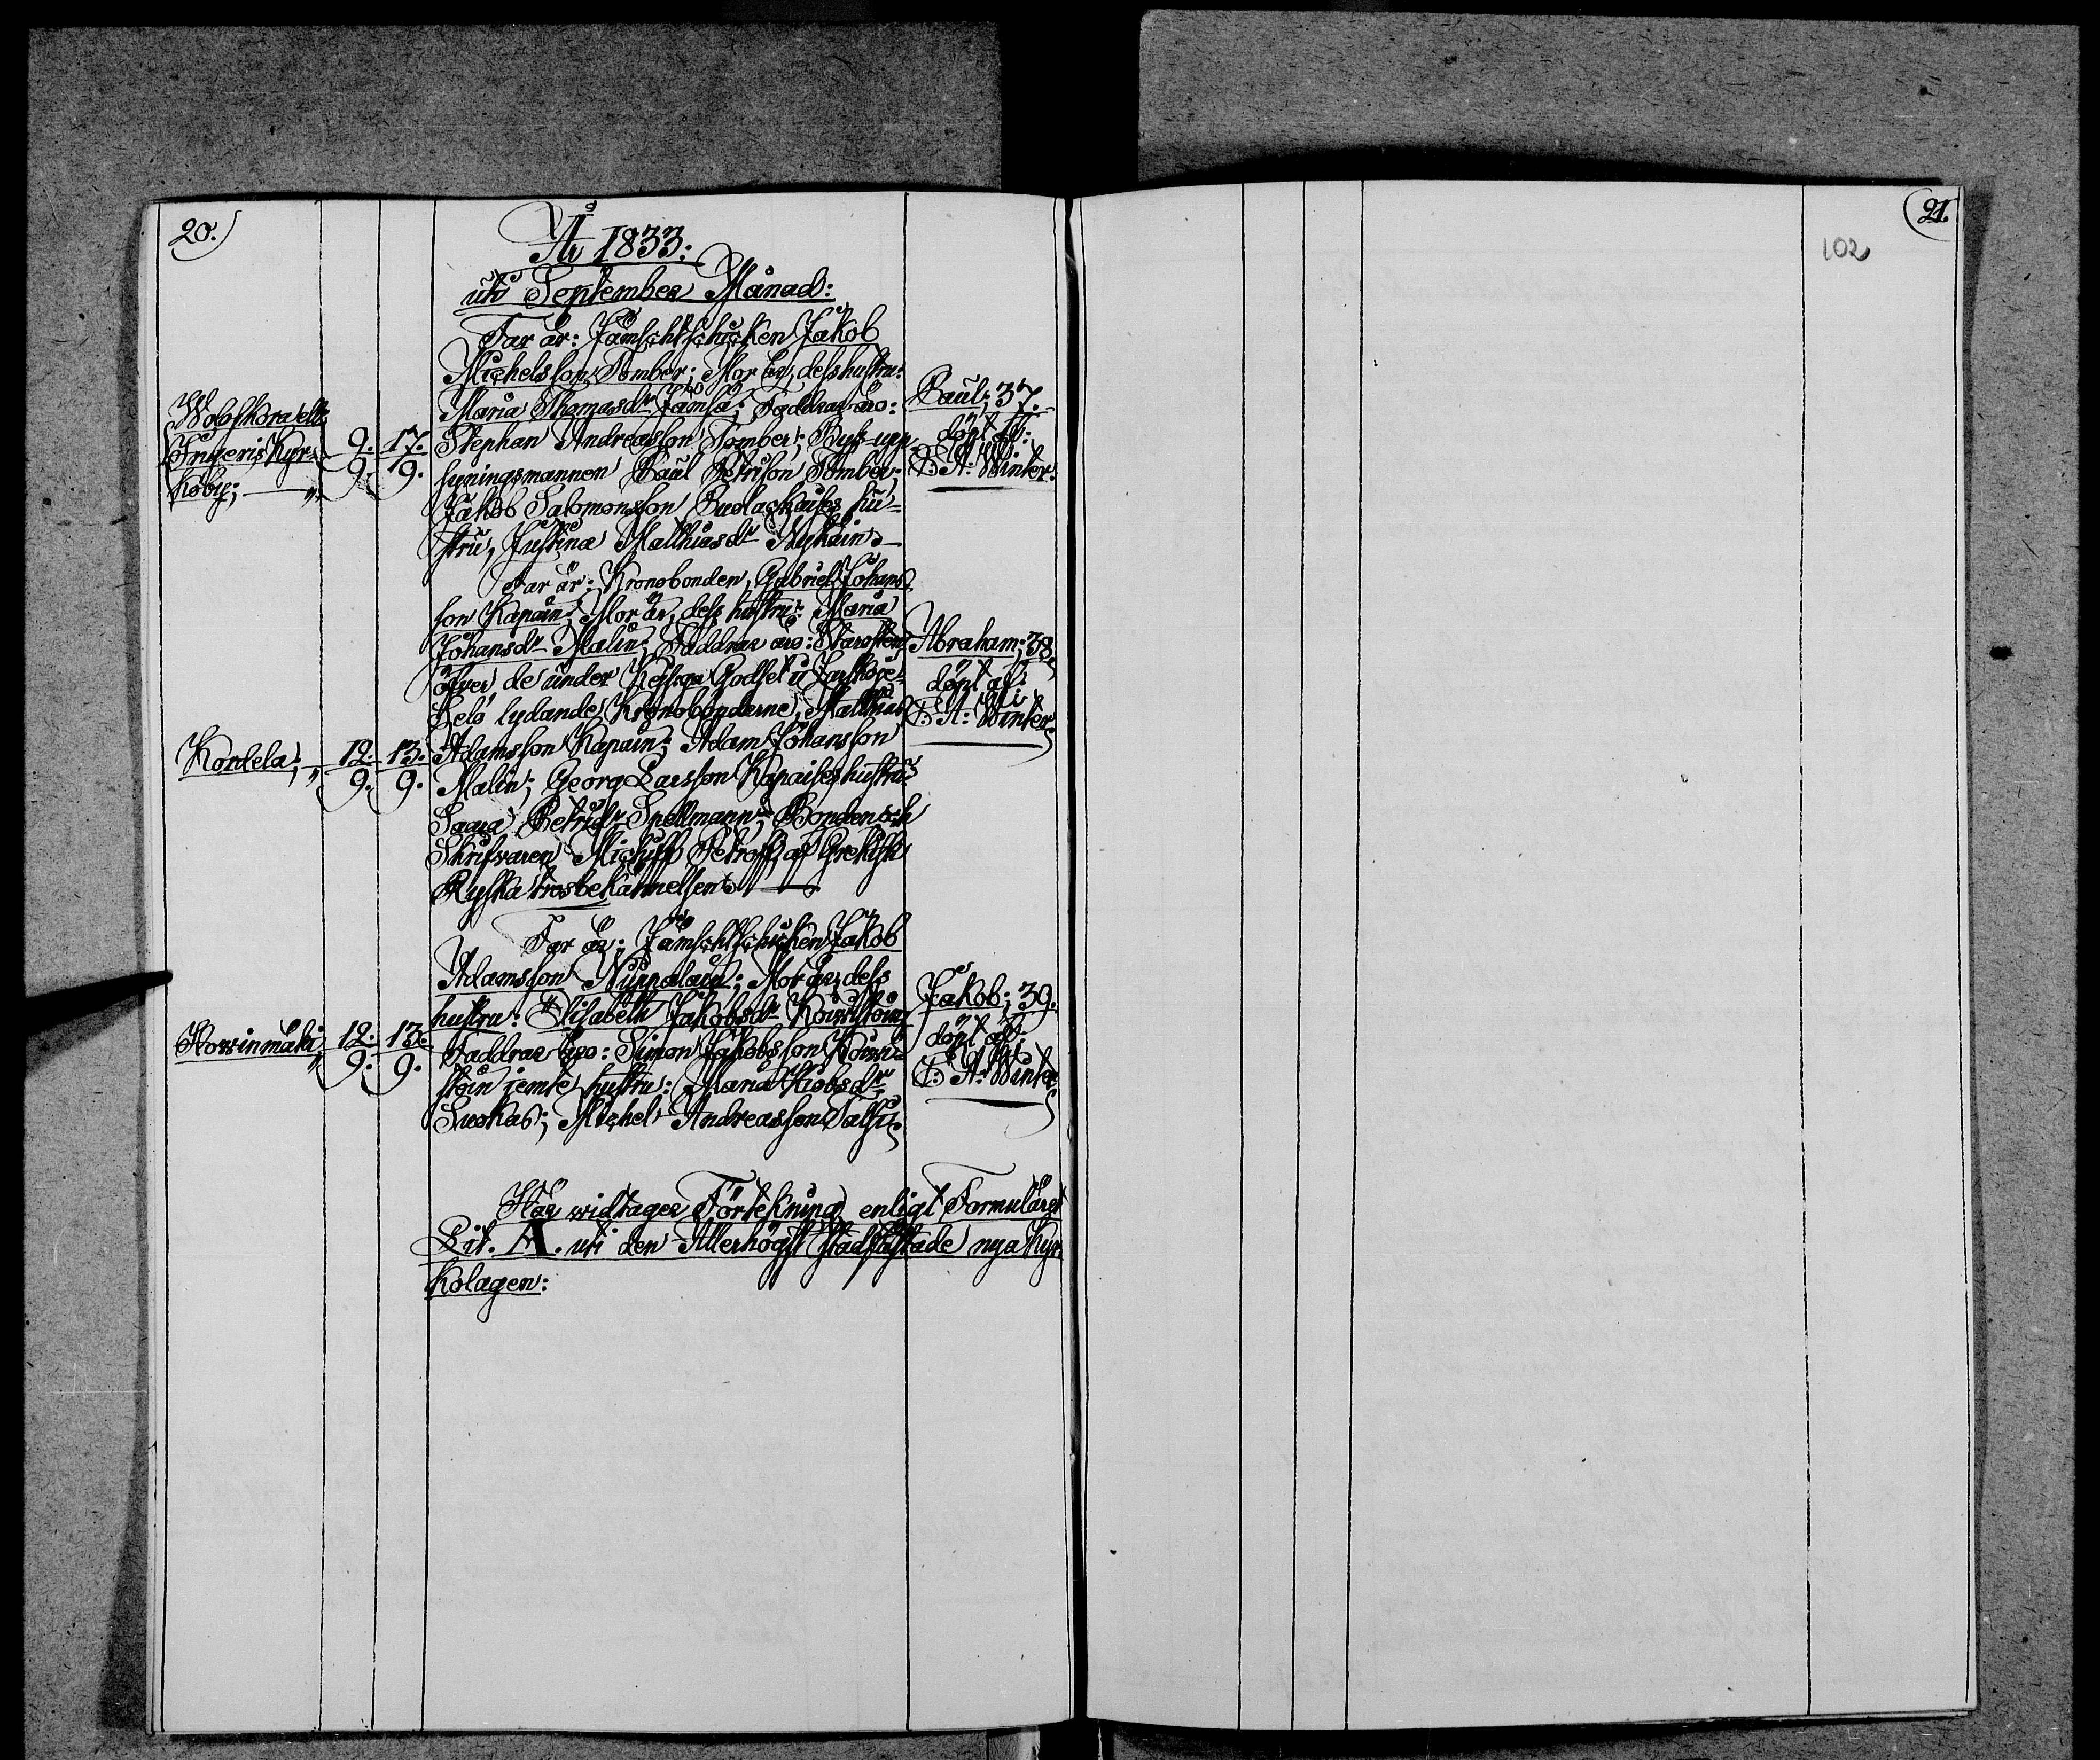 20.
År 1833.
uti September Månad:
Far är: Jämschtschicken Jakob
Michelsson Tomber; Mor är, dess hustru:
Maria Thomasdr Jämsä; Faddrar äro:
Stephan Andreasson Tomber; Bys-upp-
syningsmannen Paul Petrison Tomber;
Jakob Salomonsson Puolackaises hu=
stru, Justina Matthiasdr Nykäin.
Ingeris Kyr=
koby;
9. 17.
9. 9.
Paul; 37.
döpt af:
C: A: Winter.
Far är: Kronobonden, Gabriel Johans
son Kapain; Mor är, dess hustru: Maria
Johansdr Malin; Faddrar äro: Starosten
öfver de under Kejserl Godset
Selo lydande Kronobönderne, Matthias
Adamsson Kapain; Adam Johansson
Malin; Georg Larsson Kapaises hustru
Saara Petridr Snellmann; Bonden och
Skrifvaren Petroff, af Grekisk
Ryska trosbekännelsen.
Kordela;
12. 13.
9. 9.
Abraham; 38.
döpt af:
C: A: Winter
Far är: Jämschtschicken Jakob
Adamsson Nuppolain; Mor är, dess
hustru: Elisabeth Jakobsdr Kowistoin;
Faddrar äro: Simon Jakobsson Kowi=
stoin jemte hustru: Maria Jakobsdr
Suokas; Michel Andreasson Talsi.
Howinmäki
12. 13.
9. 9.
Jakob; 39.
döpt af:
C: A: Winter
Här widtager Förtekning enligt Formuläret
Lit. A. uti den Allerhögst stadfästade nya Kyr
kolagen:
21.
102